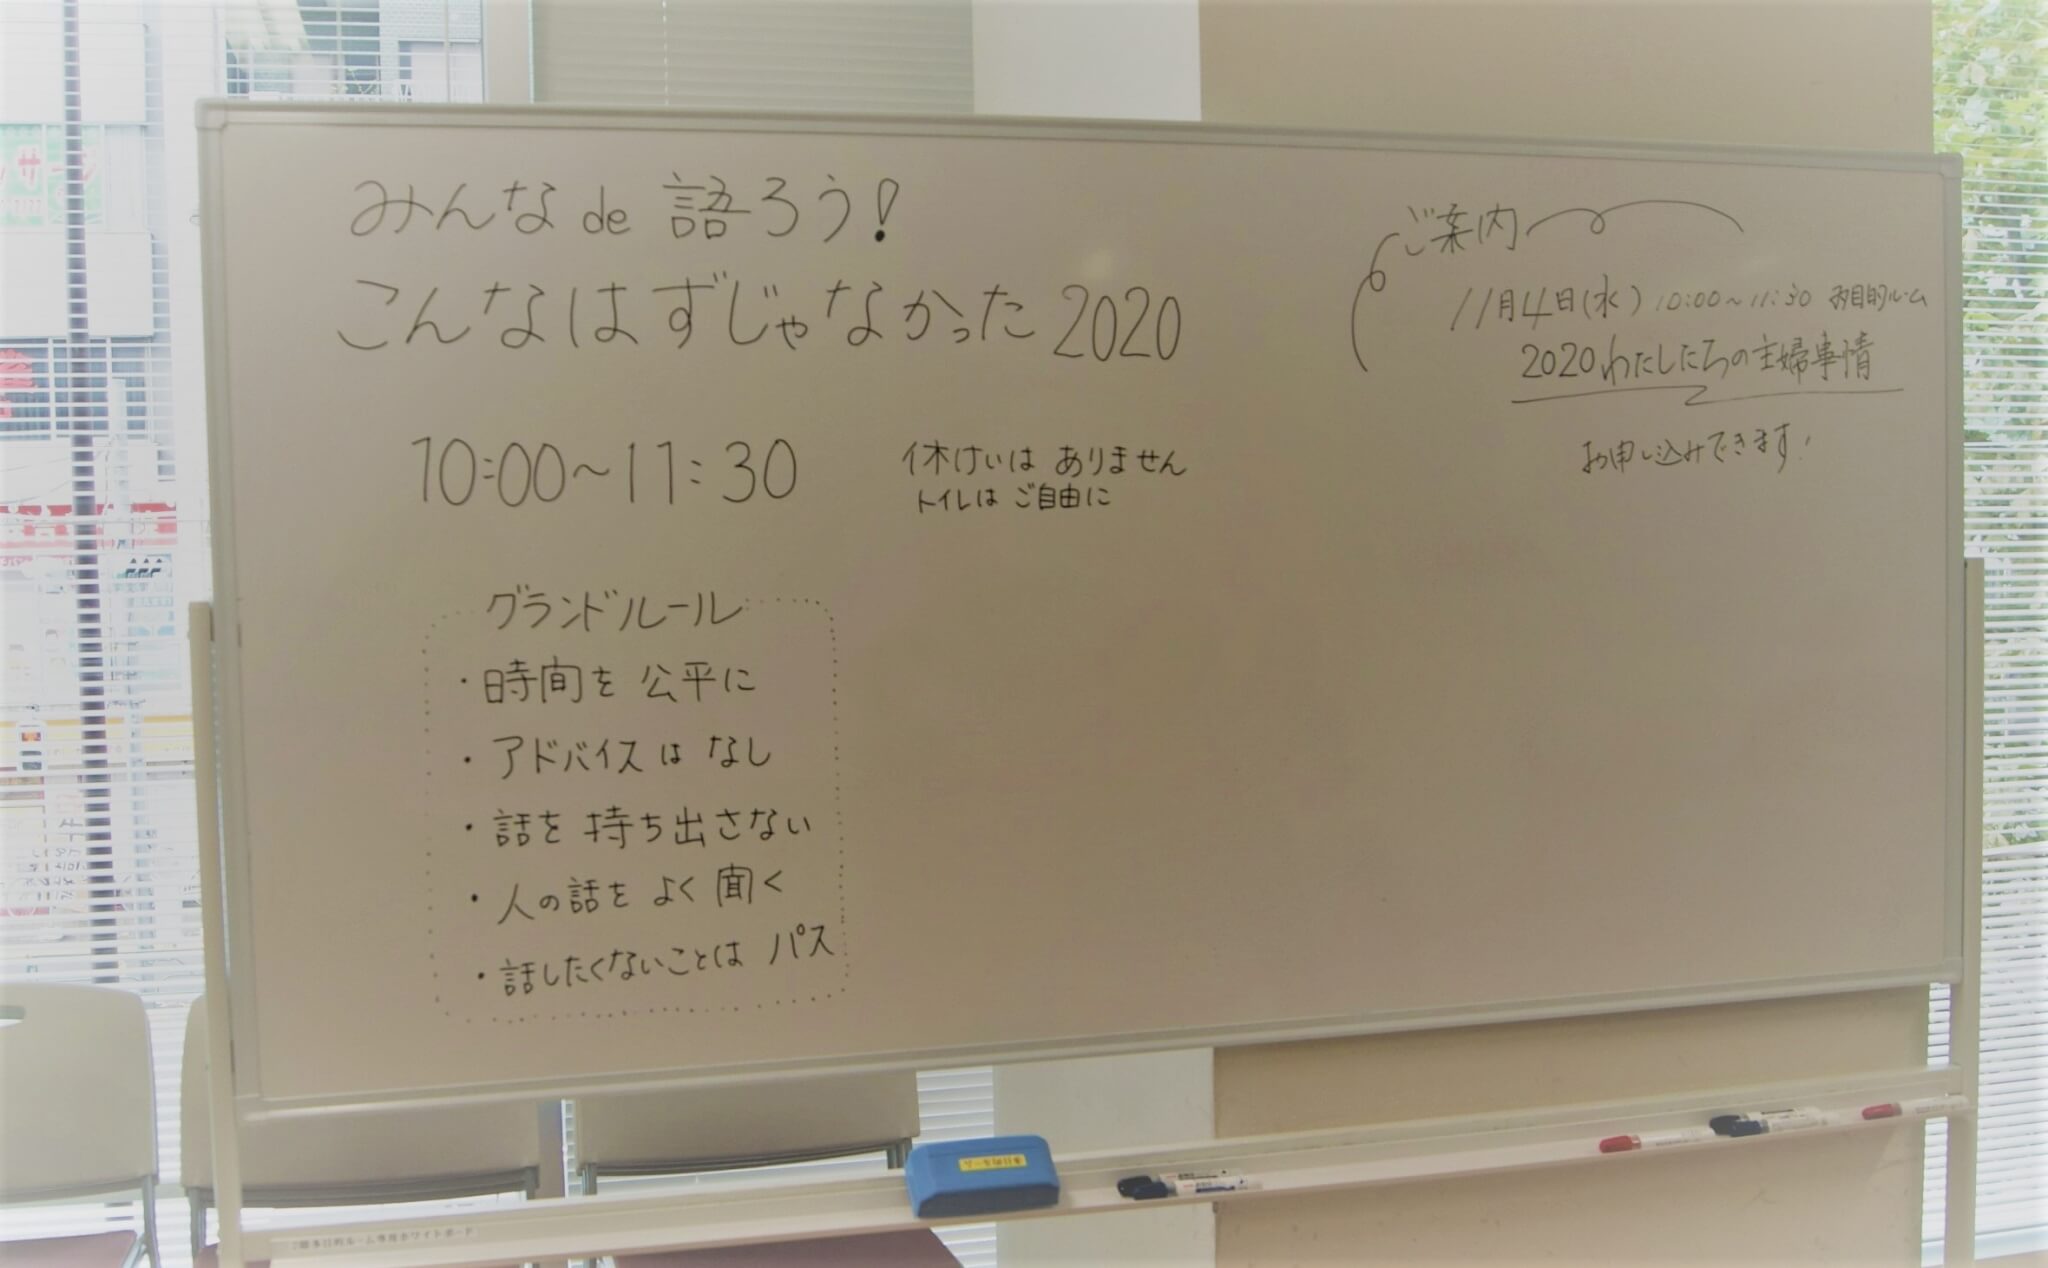 みんな de 語ろう!
こんなはずじゃなかった 2020
10:00〜11:30
休けいは ありません
トイレは ご自由に
グランドルール
・時間を 公平に
・アドバイスは なし
・話を 持ち出さない
・人の話を よく 聞く
・話したくないことは パス
ご案内
11月4日(水) 10:00〜11:30 多目的ルーム
2020わたしたちの主婦事情
お申し込みできます!
多目的ルーム専用ホワイトボード